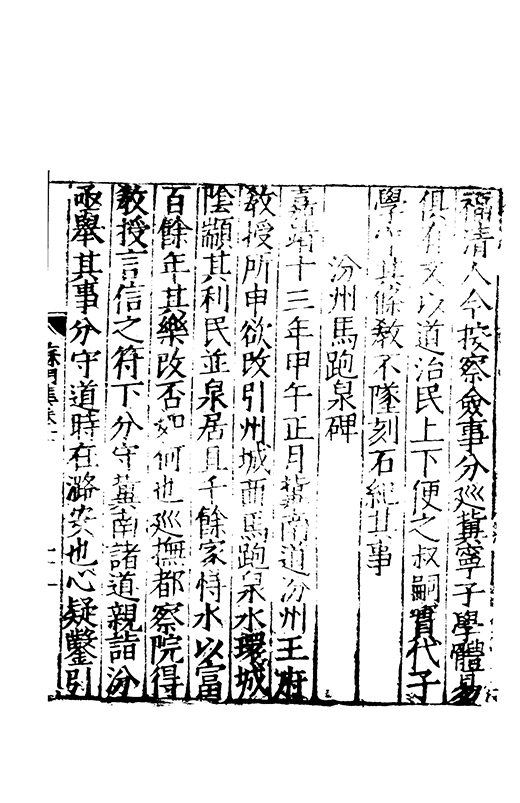 福清人今按察僉事分廵冀寧子學體易
俱有文以道治民上下便之叔嗣實代子
學守其餘敎不墜刻石紀其事
汾州馬跑泉碑
嘉靖十三年甲午正月冀南道汾州王府
敎授所申欲改引州城西馬跑泉水環城
陰顓其利民並泉居且千餘家恃水以富
百餘年其樂改否如何也廵撫都察院得
敎授言信之符下分守冀南諸道親詣汾
亟舉其事分守道時在潞安也心疑鑿引
蘇門集卷